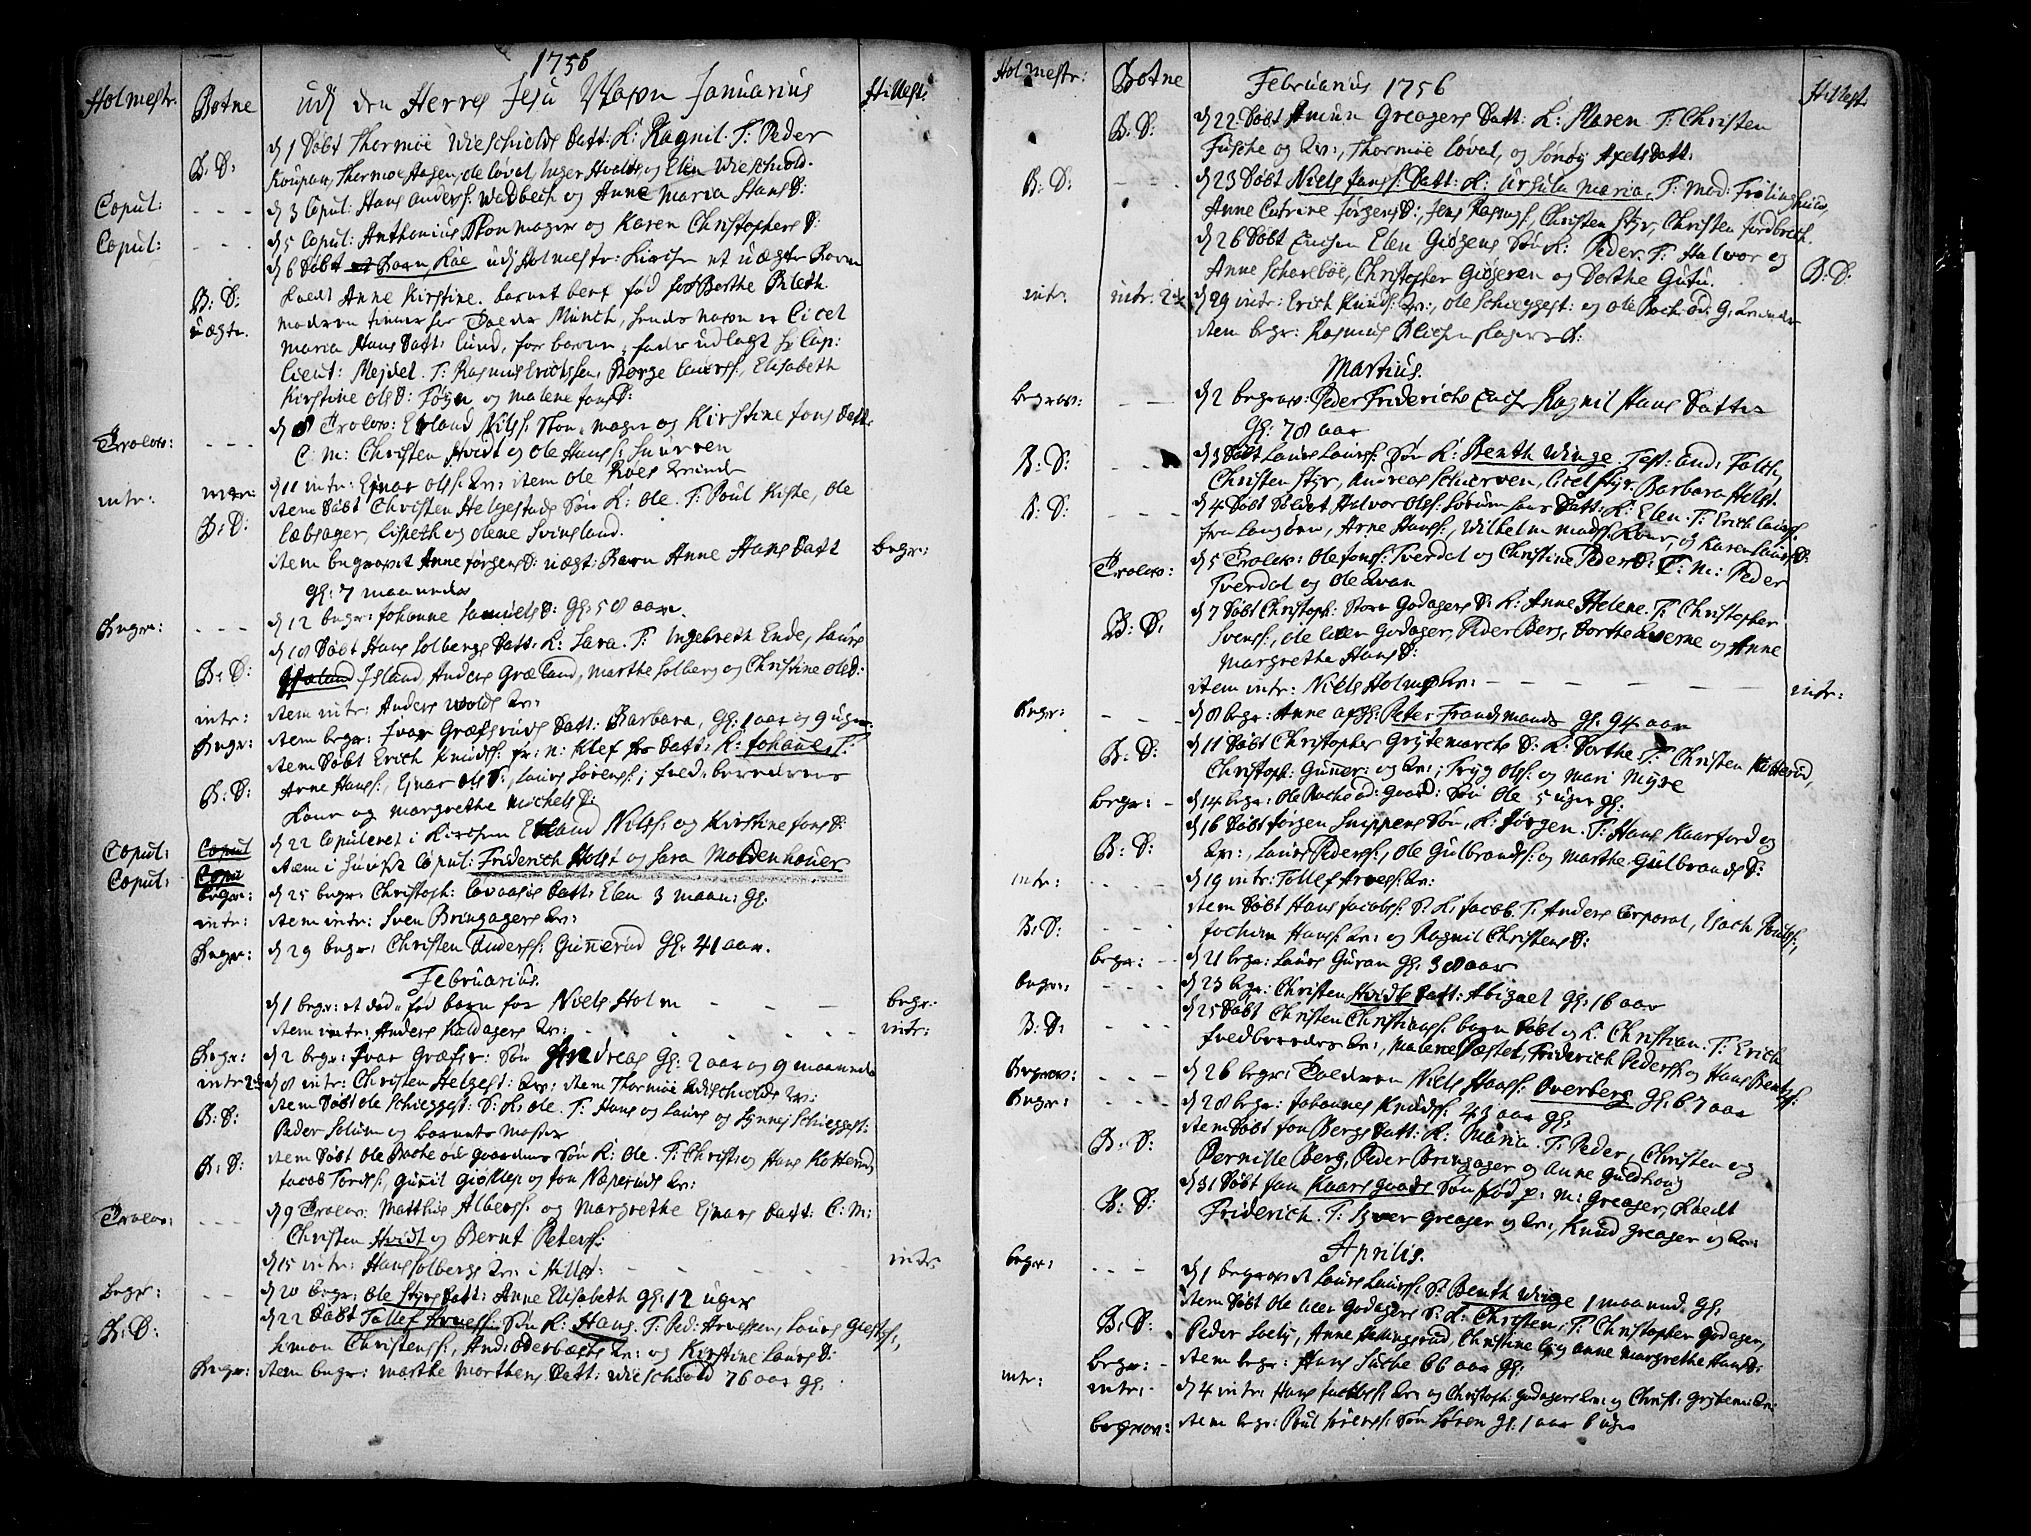 1756
Holmestr. Botne udj den Herres Jesu Nafn Januarius Hillest.
d 1 Døbt Thormøe Wieschiolds Datt: K: Ragnil. T: Peder
B: D: Koupan, Thormoe Hagen, ole løval, Inger Hvals, og Elen Wieschiold.
Copul: - - - d 3 Copul: Hans Anderss: Wadbech og Anne Maria Hans D:
Copul: - - - d 5 Copul: Anthonius Skonmager og Karen Christophers D:
d 6 Døbt udj Holmestr: Kirche et uægte Barn
B: D: Kaedt Anne Kirstine. barnet bert fød hos Berthe Phleth.
uægte. modren tienner hos Doeder Münch, hendes nafn er Cicel
Maria Hans Datt: Lund, for barne fader udlagt Hr Cap:
Lieut: Mejdel. T: Rasmus Erichssen, Børge Laurss:, Elisabeth
Kirstine Ols D: Føyn og Malene Jons D:
Trolov: - - - d 8 Trolov: Erland Nilss: Skomager og Kirstine Jons Datt
C: M: Christen Hvidt og Ole Hanss: Snurren
intr: intr: d 11 intr: Ejnar Olss: Kv: item Ole Roes Kvinde
B: D: item Døbt Christen Helgestads Søn K: Ole. T: Poul Kiste, Ole
Løbsager, Lisbeth og Olene Svinsland.
item begravet Anne Jørgens D: uægt: Barn Anne Hans Datt begr:
gl: 7 maaneder
Begr: - - - d 12 begr: Johanne Samuels D: Gl: 58 aar.
d 18 Døbt Hans Solbergs Datt: K: Sara. T: Ingebreth Ende, Laurs
B: D: Island, Anders Græland, Marthe Solberg og Christine Ols D:
intr: item intr: Anders Wolds Kv:
Begr: item begr: Ivar Græfsruds Datt: Barbara, Gl: 1 aar og 9 uger.
item Døbt Erich Knudss: fr: n: Klef Datt: K: Johane T:
B: D: Arne Hanss:, Ejnar Ols D:, Laurs Sørenss:, fredberederens
Kone og Margrethe Michels D:
Copul: d 22 Copuleret i Kirchen Erland Nilss: og Kirstine Jons D:
Copul: item i Huuset Copul: Friderich Holst og Sara Moldenhouer
begr: d 25 begr: Christoph: Lovaasis Datt: Elen 3 maan: Gl:
intr: item intr: Sven Bringagers Kv:
Begr: d 29 begr: Christen Anderss: Gunnerud Gl: 41 aar.
Februarius.
d 1 begr: et død-fød barn for Niels Holm - - - begr:
item intr: Anders Kaldagers Kv: - - - intr:
Begr: d 2 begr: Ivar Græfsr: Søn Andreas Gl: 2 aar og 9 maaneder
intr 2 d 8 intr: Christen Helgest: Kv: item Thormøe Wieschiolds Kv:
B: D: item Døbt Ole Schieggest: S: K: Ole. T: Hans og Laurs og Synnev Schieggest:
Peder Solum og barnets Moster
B: D: item Døbt Ole Bache ødegaardens Søn K: Ole. T: Christ: og Hans Kotterud
Jacob Tordss:, Gunnil Giøklep og Jon Næperuds Kv:
Trolov: - - - d 9 Trolov: Matthis Alberss: og Margrethe Ejnars Datt: C: M:
Christen Hvidt og Bernt Peterss:
d 15 intr: Hans Solbergs Kv: i Hillest: - - - intr:
begr: - - d 20 begr: Ole Styrs Datt: Anne Elisabeth gl: 12 uger
B: D: d 22 Døbt Tollef Arness: Søn K: Hans. T: Ped: Arnessen, Laurs
Simon Christenss:, And: Oderbæchs Kv: og Kirstine Laurs D:
Begr: item begr: Marthe Morthens Datt: Wieschiold 76 aar gl:
Holmestr: Botne Februarius 1756 Hillest:
B: D: d 22 Døbt Amun Greagers Datt: K: Maren T: Christen
Fusche og Kv:, Thormøe Løval, og Sønøy Axels Datt:
B: D: - - - d 23 Døbt Niels Janss: Datt: K: Ursula Maria. T: Mad:
Anne Catrine Jørgens D:, Jens Rasmuss:, Christen Styr, Christen
d 26 Døbt Enchen Elen Giøgens Søn K: Peder. T: Halvor og
Anne Schareboe, Christopher Giøgeren og Dorthe Gutu. B: D:
intr: intr: 2 d 29 intr: Erich Knuds: Kv:, Ole Schieggest: og Ole Bach: ød: G: Kvinder
item begr: Rasmus Blichenslagers D:
Martius.
begrav: - - d 2 begrav: Peder Friderichs Enche Ragnil Hans Datter
Gl: 78 aar
B: D: - - - d 3 Døbt Laurs Laurss: Søn K: Benth Winge. Test: And: Falch,
Christen Styr, Andreas Schierven, Cicel Styr. Barbara Helgt.
B: D: - - - d 4 Døbt Soldet Halvor Olss: Sørum Datt: K: Elen. T: Erich Laurss:
fra Langøen, Arne Hanss:, Wilhelm Madss: Kone, og Karen Laurs D:
Trolov: d 5 Trolov: Ole Jonss: Tverdal og Christine Peders D: T: M: Peder
Tverdal og Ole Evan
B: D: d 7 Døbt Christoph: Store Godagers D: K: Anne Helene. T: Christopher
Svenss:, Ole Liden Godager, Peder Berg, Dorthe Kverne og Anne
Margrethe Hans D:
item intr: Niels Holms Kv: - - - - intr:
Begr: - - - d 8 begr: Anne afgl: Peter Frandsmands gl: 94 aar
B: D: d 11 Døbt Christopher Grytemarchs D: K: Dorthe. T: Christen Kotterud,
Christoph: Gunner: og Kv:, Tryg Olss: og Mari Myre
begr: - d 14 begr: Ole Bache ød: gaard: Søn Ole 5 uger gl:
B: D: d 16 Døbt Jørgen Snippens Søn, K: Jørgen. T: Hans Kaarford og
Kv:, Laurs Pederss:, Ole Gulbrandss: og Marthe Gulbrands D:
intr: - - - d 19 intr: Tollef Arness: Kv:
B: D: - - - item Døbt Hans Jacobss: S: K: Jacob. T: Anders Corporal, Isach Poulss:,
Jochum Hanss: Kv: og Ragnil Christens D:
begr: - - d 21 begr: Laurs Guran gl: 38 aar
begr: - - - d 23 begr: Christen Hvidts Datt: Abigael gl: 16 aar
B: D: - - - d 25 Døbt Christen Christianss: barn Døbt og K: Christian. T: Erich
fredbereders Kv:, Malene Næstet, Friderich Pederss: og Hans Bentss:
Begrav: - - - d 26 begr: Doedren Niels Hanss: Overberg gl: 67 aar
Begr: - - - d 28 begr: Johannes Knudss: 43 aar gl:
B: D: item Døbt Jon Bergs Datt: K: Maria. T: Peder, Christen og
Pernille Berg, Peder Bringager og Anne Guldhoug
B: D: d 31 Døbt Jan Kaarsgaards Søn fød p: M: Greager, Kaedt
Friderich. T: Iver Greager og Kv:, Knud Greager og Kv:
Aprilis.
begr: - - - d 1 begravet Laurs Laurss: S: Benth Winge 1 maaned gl:
B: D: item Døbt Ole Liden Godagers S: K: Christen. T: Christopher Godager,
Peder Soely, Anne Hallingsrud, Christine og Anne Margrethe Hans D:
begr: - item begr: Hans Suche 66 aar gl:
intr: intr: - d 4 intr: Hans Jacobss: Kv: og Christoph: Godagers Kv: og Christ: Grytem: Kv:
begrav: item begr: Poul Sørenss: Søn Søren gl: 1 aar 6 uger